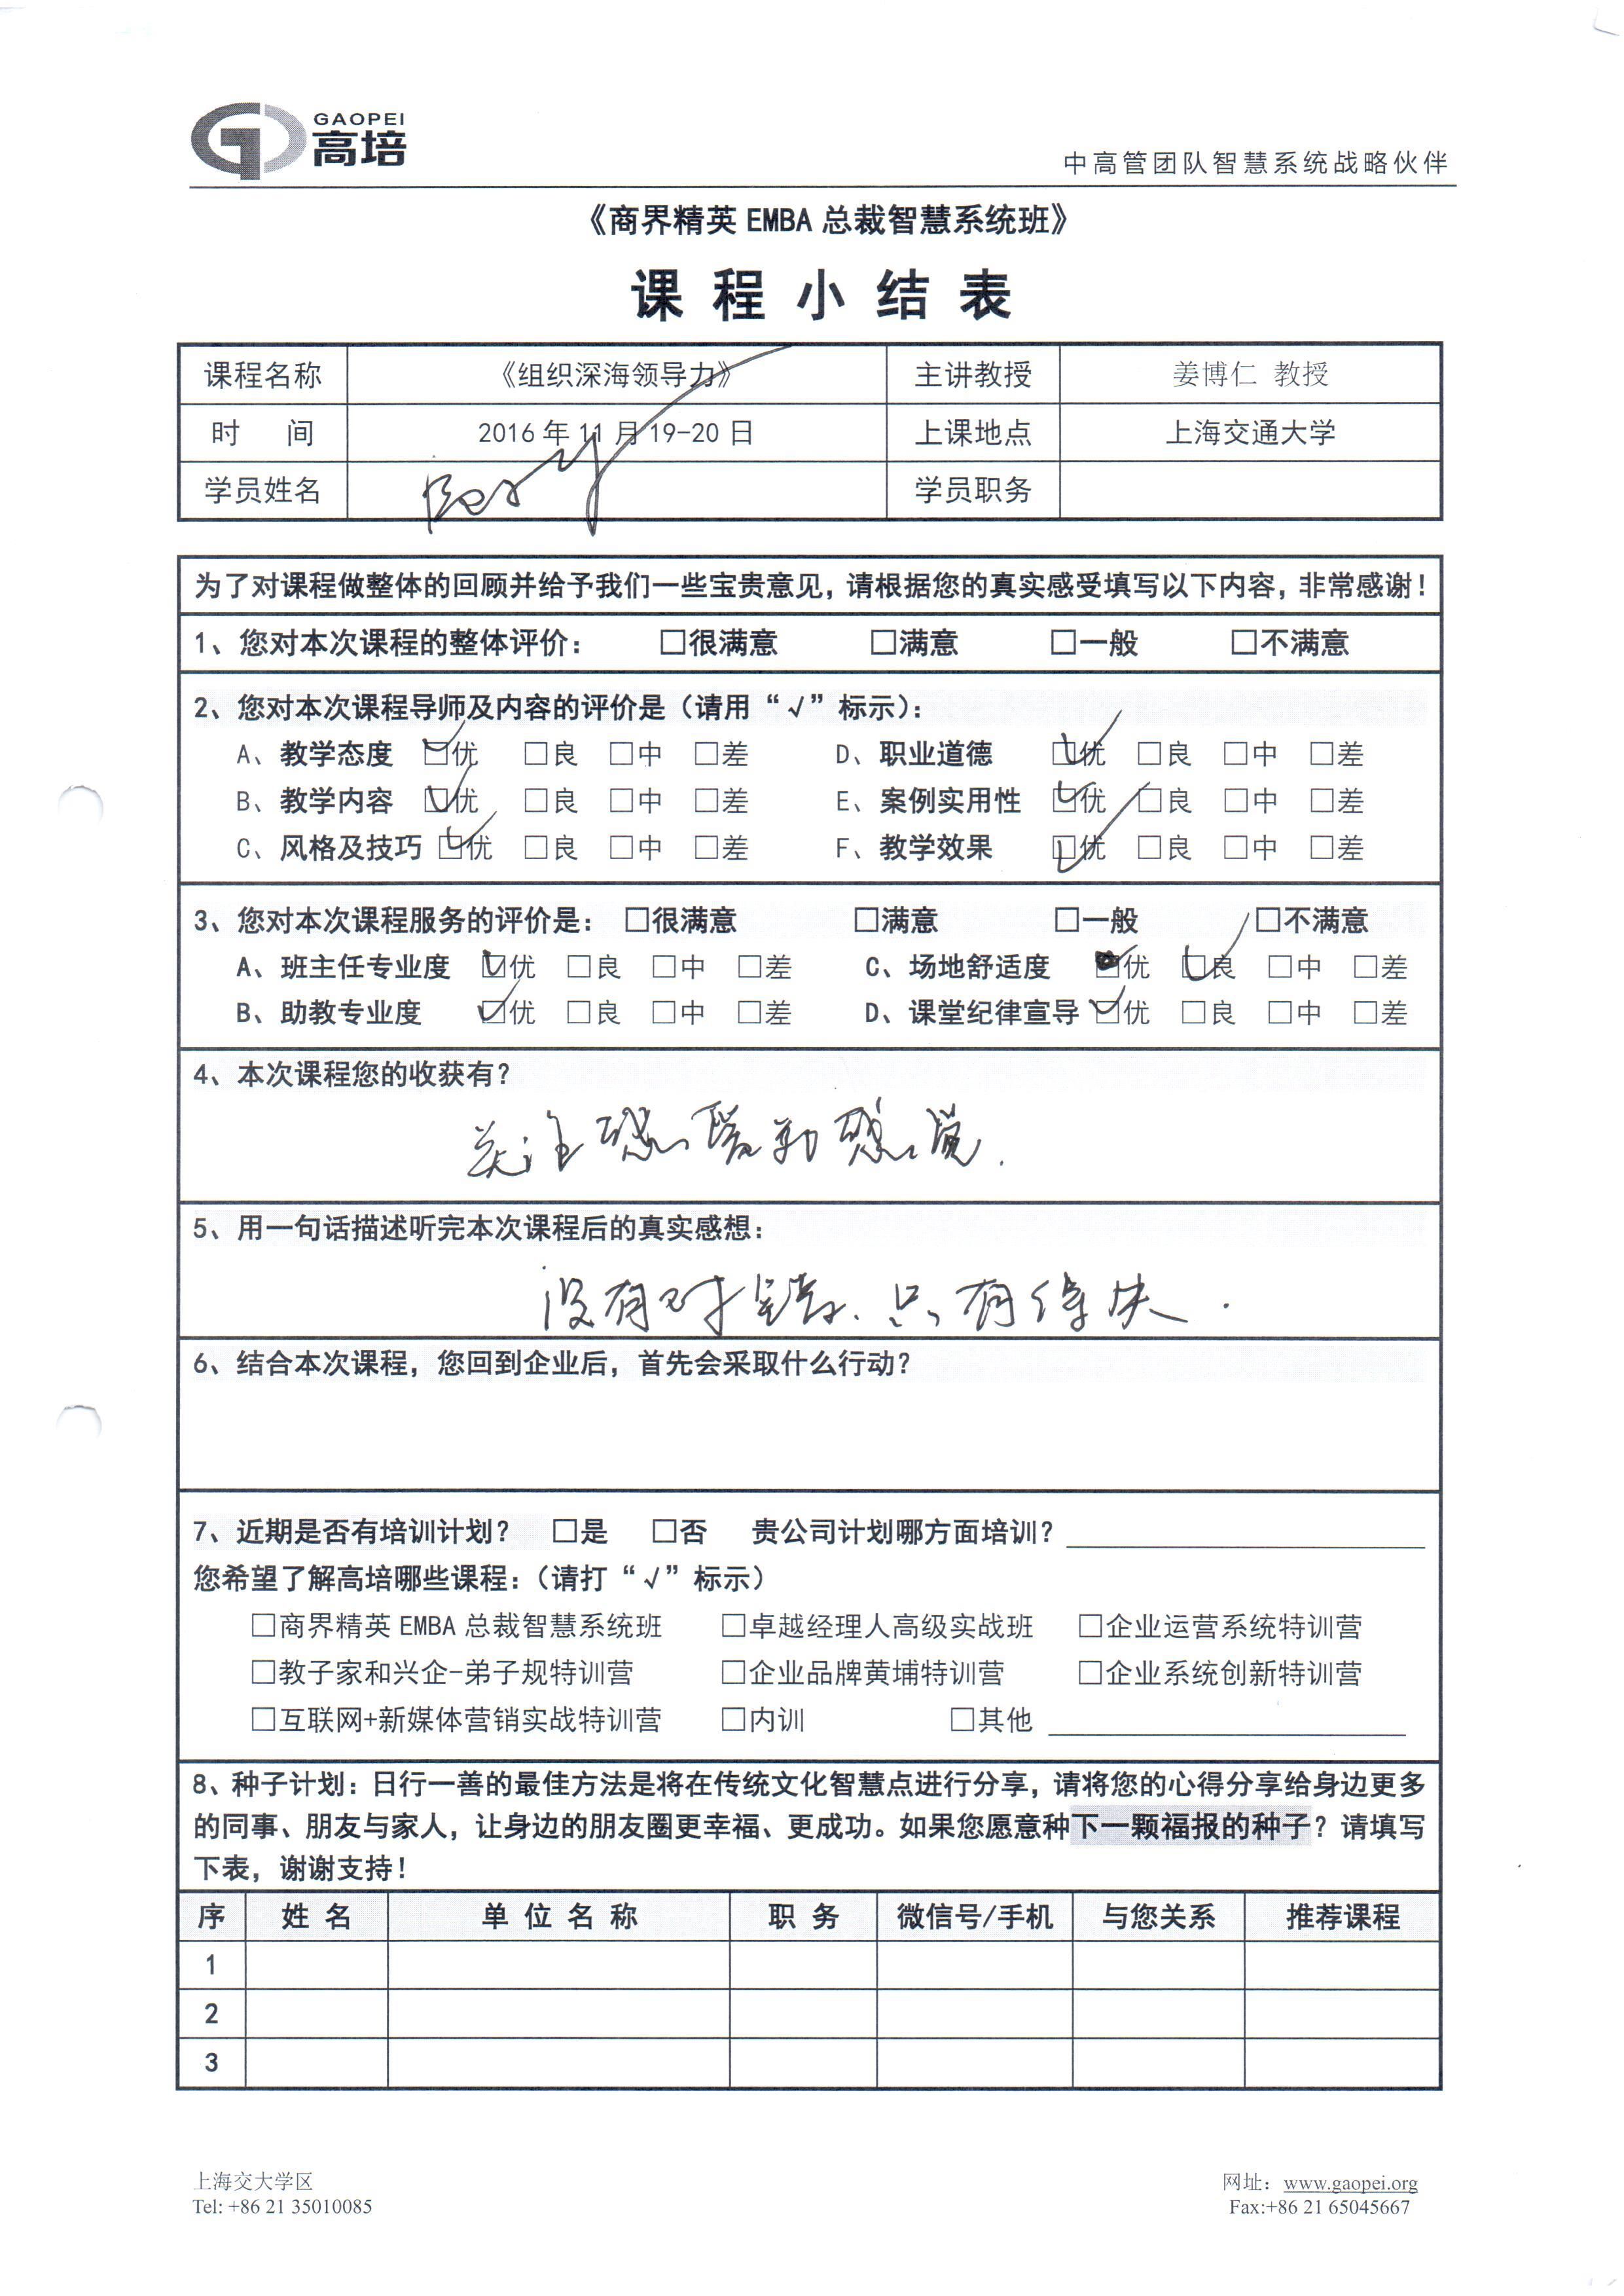 GAOPEI
高培
中高管团队智慧系统战略伙伴
《商界精英 EMBA 总裁智慧系统班》
课 程 小 结 表
课程名称 《组织深海领导力》 主讲教授 姜博仁 教授
时 间 2016 年 11 月 19-20 日 上课地点 上海交通大学
学员姓名 学员职务
为了对课程做整体的回顾并给予我们一些宝贵意见，请根据您的真实感受填写以下内容，非常感谢！
1、您对本次课程的整体评价： □很满意 □满意 □一般 □不满意
2、您对本次课程导师及内容的评价是（请用“√”标示）：
A、教学态度 ☑优 □良 □中 □差 D、职业道德 ☑优 □良 □中 □差
B、教学内容 ☑优 □良 □中 □差 E、案例实用性 ☑优 □良 □中 □差
C、风格及技巧 ☑优 □良 □中 □差 F、教学效果 ☑优 □良 □中 □差
3、您对本次课程服务的评价是： □很满意 □满意 □一般 □不满意
A、班主任专业度 ☑优 □良 □中 □差 C、场地舒适度 ■优 ☑良 □中 □差
B、助教专业度 ☑优 □良 □中 □差 D、课堂纪律宣导 ☑优 □良 □中 □差
4、本次课程您的收获有？
关注 感觉.
5、用一句话描述听完本次课程后的真实感想：
没有对错. 只有得失.
6、结合本次课程，您回到企业后，首先会采取什么行动？
7、近期是否有培训计划？ □是 □否 贵公司计划哪方面培训？
您希望了解高培哪些课程：（请打“√”标示）
□商界精英 EMBA 总裁智慧系统班 □卓越经理人高级实战班 □企业运营系统特训营
□教子家和兴企-弟子规特训营 □企业品牌黄埔特训营 □企业系统创新特训营
□互联网+新媒体营销实战特训营 □内训 □其他
8、种子计划：日行一善的最佳方法是将在传统文化智慧点进行分享，请将您的心得分享给身边更多
的同事、朋友与家人，让身边的朋友圈更幸福、更成功。如果您愿意种下一颗福报的种子？请填写
下表，谢谢支持！
序 姓 名 单 位 名 称 职 务 微信号/手机 与您关系 推荐课程
1
2
3
上海交大学区 网址：www.gaopei.org
Tel: +86 21 35010085 Fax:+86 21 65045667